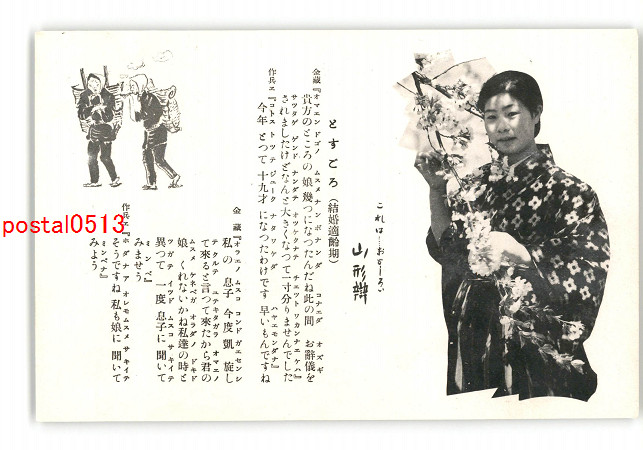 これは…おもしろい
山形辯
とすごろ(結婚適齢期)
金藏『オマエンドゴノ ムスメナンボナンダ コナエダ オズギ
貴方のところの娘幾つになつたんだね此の間 お辭儀を
サッタゲ ゲンド ナンダテ オッケクナテ チェット ワカンナエケム』
されましたけどなんと大きくなつて一寸分りませんでした
作兵エ『コトス トッテ ジューク ナタワケダ ハヤエモンダナ』
今年 とつて 十九才 になつたわけです 早いもんですね
金 藏『オラエノ ムスコ コンド ガエセンシ
私の 息子 今度 凱旋し
テクルテ ユテキタガラ オマエノ
て來ると言つて來たから君の
ムスメ ケネベガ オラダノ ドキド
娘、くれないかね私達の時と
ツガテ イツヅド ムスコサ キイテ
異つて 一度 息子に 聞いて
ミンベ』
みませう
作兵エ『ホダナア オレモムスメサ キイテ
そうですね 私も娘に 聞いて
ミンベナ』
みよう
postal0513